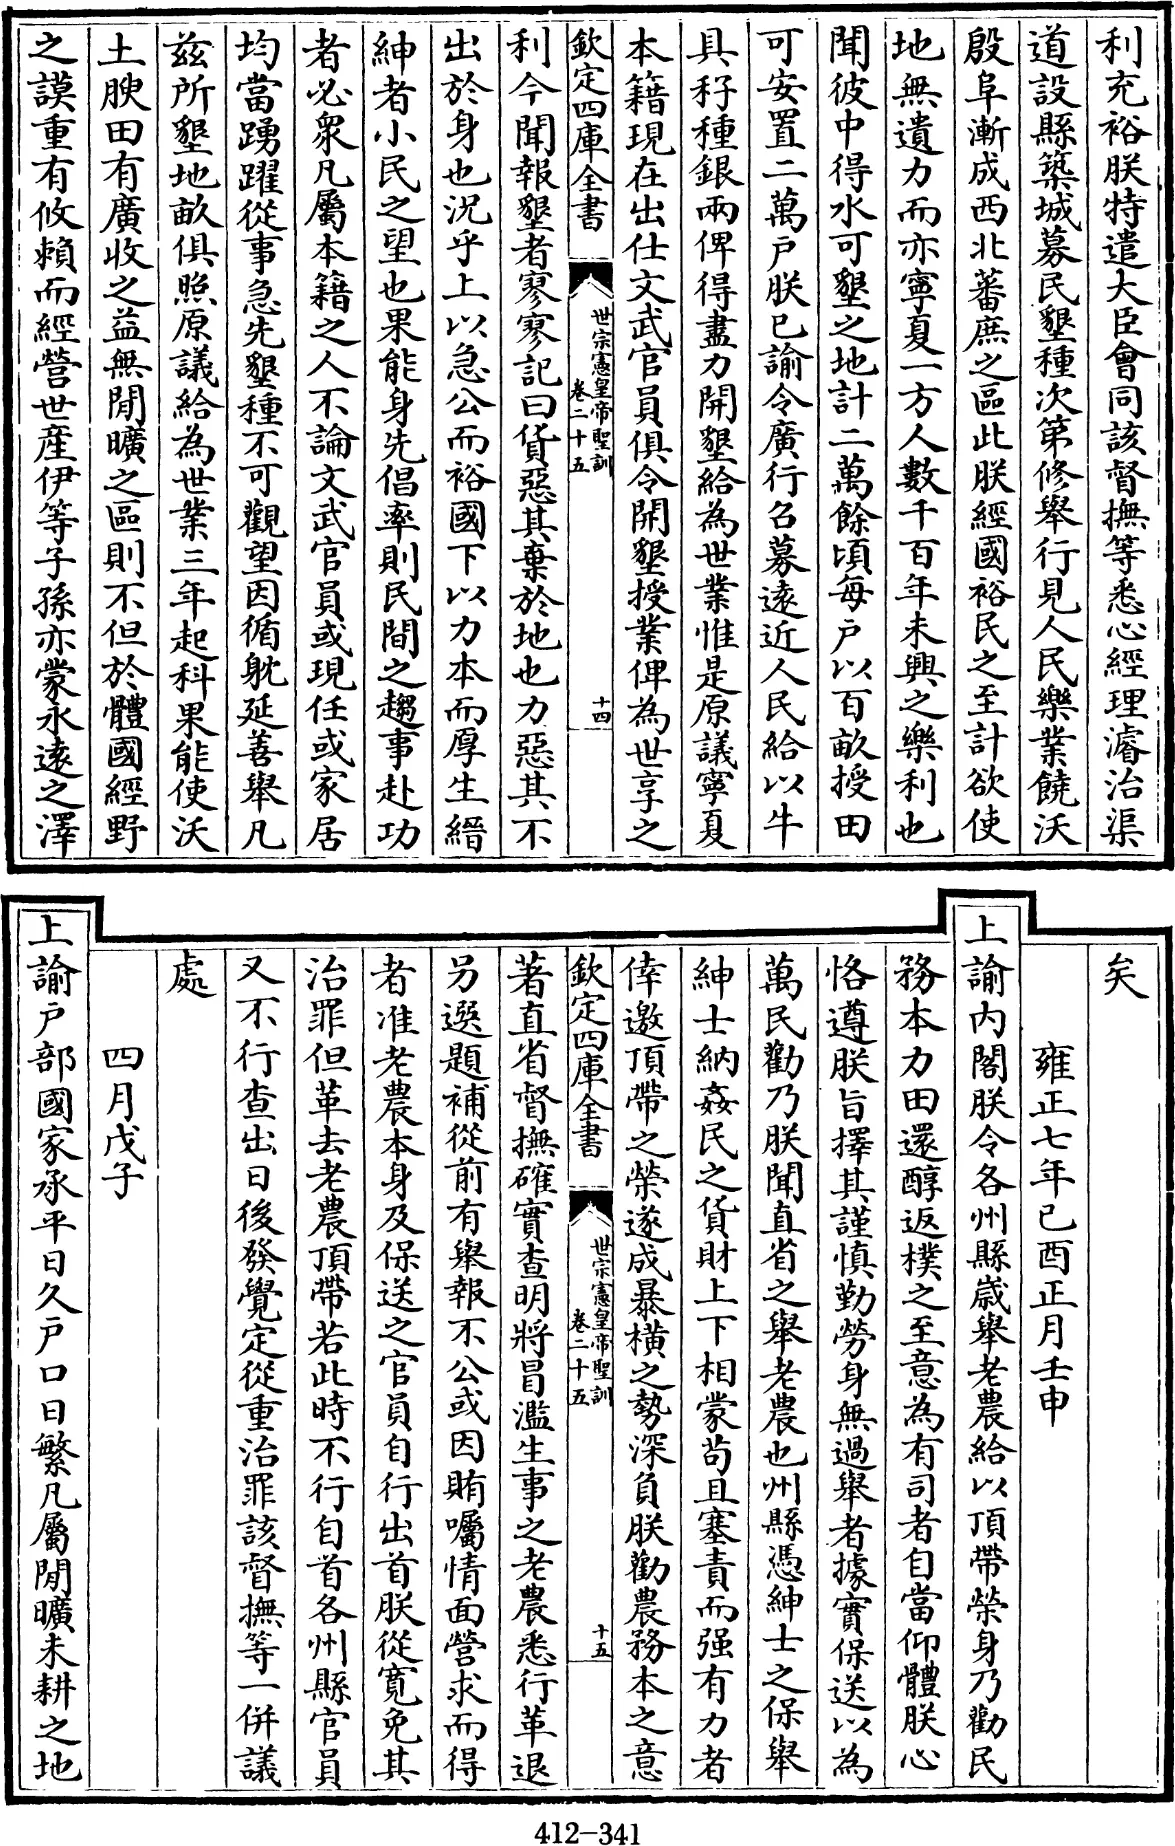 利充裕朕特遣大臣會同該督撫等悉心經理濬治渠
道設縣築城募民墾種次第修舉行見人民樂業饒沃
殷阜漸成西北蕃庶之區此朕經國裕民之至計欲使
地無遺力而亦寧夏一方人數千百年未興之樂利也
聞彼中得水可墾之地計二萬餘頃每戶以百畝授田
可安置二萬戶朕已諭令廣行召募遠近人民給以牛
具籽種銀兩俾得盡力開墾給為世業惟是原議寧夏
本籍現在出仕文武官員俱令開墾授業俾為世享之
欽定四庫全書
世宗憲皇帝聖訓
卷二十五
十四
利今聞報墾者寥寥記曰貨惡其棄於地也力惡其不
出於身也況乎上以急公而裕國下以力本而厚生縉
紳者小民之望也果能身先倡率則民間之趨事赴功
者必衆凡屬本籍之人不論文武官員或現任或家居
均當踴躍從事急先墾種不可觀望因循躭延善舉凡
茲所墾地畝俱照原議給為世業三年起科果能使沃
土腴田有廣收之益無閒曠之區則不但於體國經野
之謨重有攸賴而經營世產伊等子孫亦蒙永遠之澤
矣
雍正七年己酉正月壬申
上諭內閣朕令各州縣歲舉老農給以頂帶榮身乃勸民
務本力田還醇返樸之至意為有司者自當仰體朕心
恪遵朕旨擇其謹慎勤勞身無過舉者據實保送以為
萬民勸乃朕聞直省之舉老農也州縣憑紳士之保舉
紳士納姦民之貨財上下相蒙苟且塞責而强有力者
倖邀頂帶之榮遂成暴橫之勢深負朕勸農務本之意
欽定四庫全書
世宗憲皇帝聖訓
卷二十五
十五
著直省督撫確實查明將冒濫生事之老農悉行革退
另選題補從前有舉報不公或因賄囑情面營求而得
者准老農本身及保送之官員自行出首朕從寬免其
治罪但革去老農頂帶若此時不行自首各州縣官員
又不行查出日後發覺定從重治罪該督撫等一併議
處
四月戊子
上諭戶部國家承平日久戶口日繁凡屬閒曠未耕之地
412-341